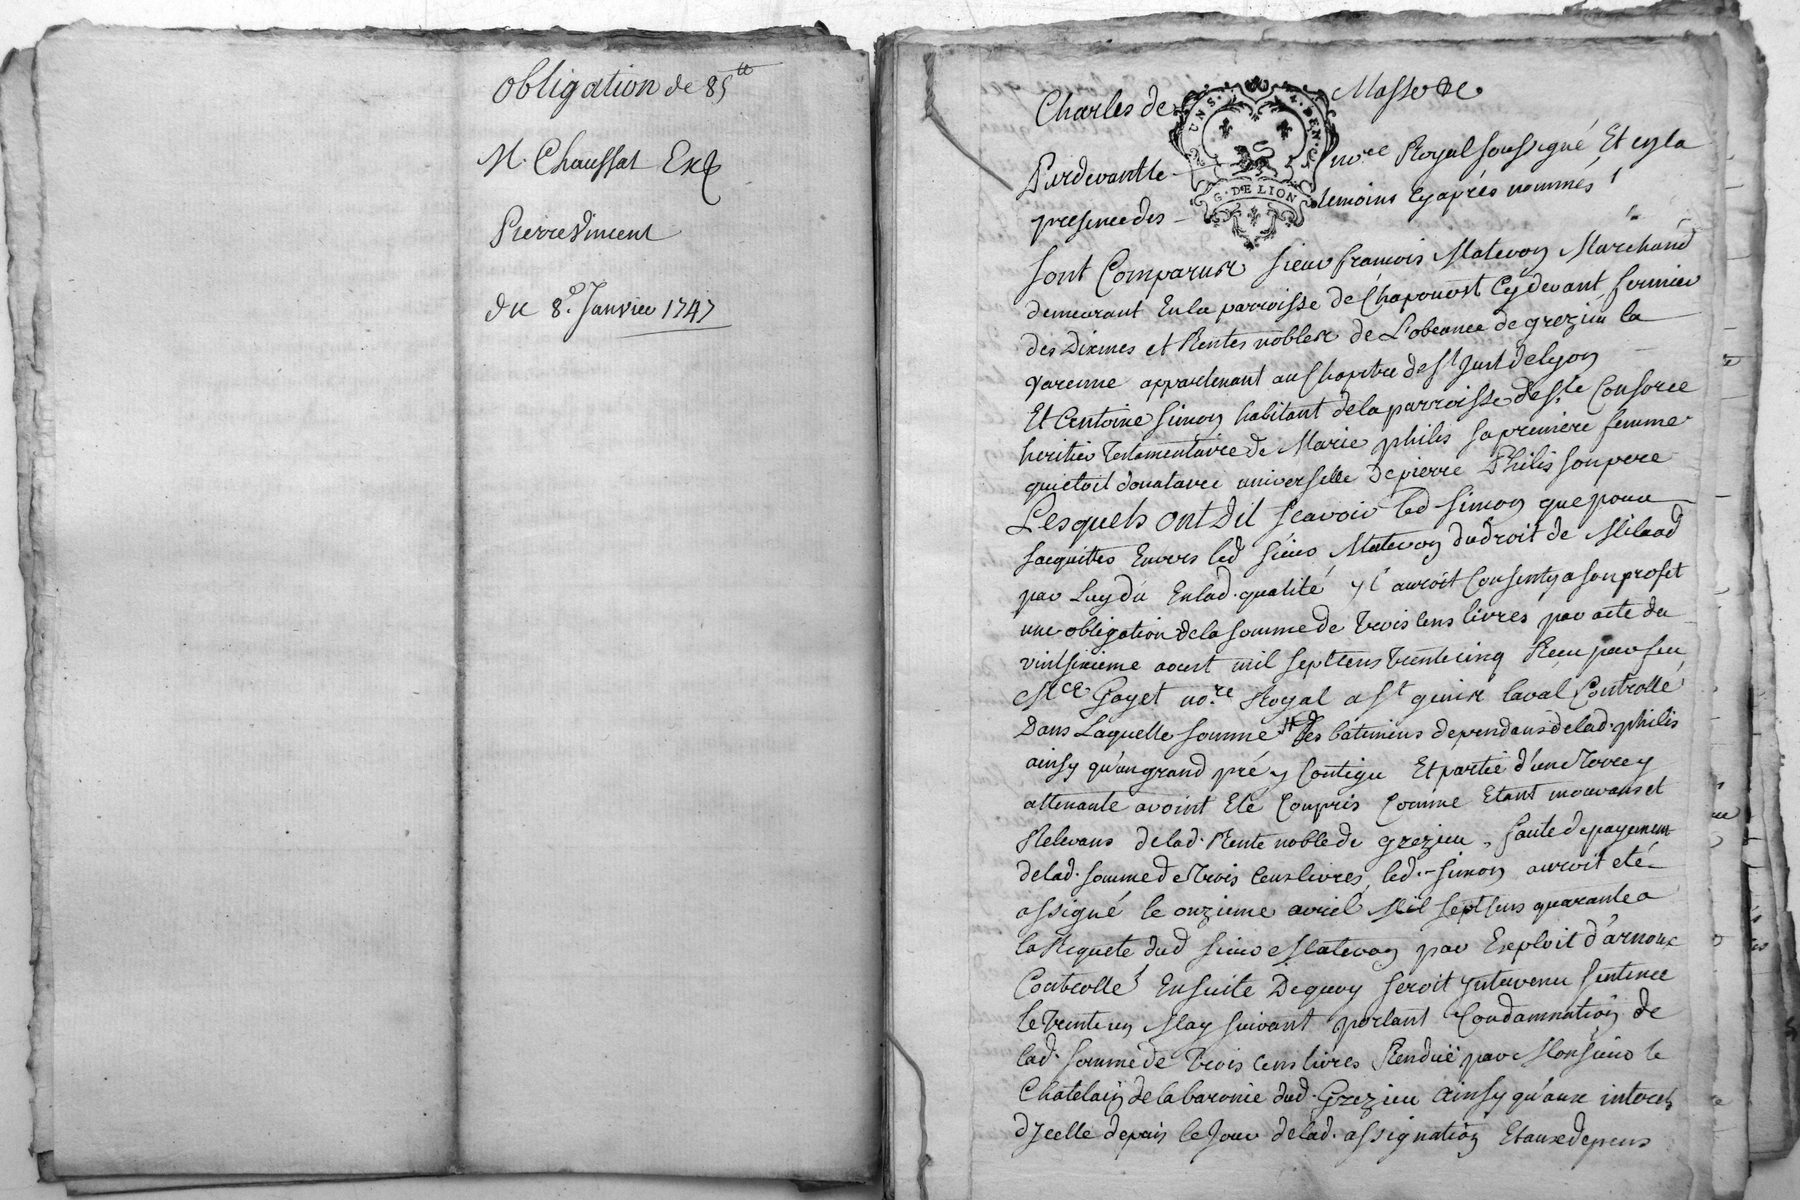 Obligation de 85 tt
M. Chaussat Exp
Pierre Vincent
du 8e. Janvier 1747
Charles de Massore
Pardevant le nore Royal soussigné Et en la
presence des temoins Cy après nommés
sont Comparus sieur francois Matevon Marchand
demeurant En la parroisse de Chaponost Cy devant fermier
des Dixmes et Rentes nobles de L'obeance de grezieu la
varenne appartenant au Chapitre de St Just de Lyon
Et Antoine Simon habitant de la parroisse de Ste Consorce
heritier Testamentaire de Marie philis sa premiere femme
qui etoit donataire universelle De pierre Philis son pere
Lesquels ont Dit scavoir led simon que pour
sacquitter Envers led sieur Matevon du droit de Milaod
par Luy du En lad. qualité, il auroit Consenty a son profit
une obligation de la somme de trois cens livres par acte du
vint sixieme aoust mil sept cens trente cinq Recu par feu
Me Gayet nore. Royal a St genis laval Controllé
Dans Laquelle somme les bâtimens dependans de lad. philis
ainsy qu'un grand pré y Contigu Et partie d'une Terre y
attenante avoint Eté Compris Comme Etant mouvans et
Relevans de lad. Rente noble de grezieu, faute de payement
de lad. somme de Trois Cens livres, led. simon auroit eté
assigné le onzieme avril Mil sept cens quarante a
la Requete dud sieur Matevon par Exploit d'arnoux
Controllé Ensuite De quoy seroit intervenu sentence
le trente un May suivant portant Condamnation de
lad. somme de trois cens livres Renduë par Monsieur le
Chatelain de la baronie dud. Grezieu ainsy qu'aux interets
d'Jcelle depuis le Jour de lad. assignation Et aux depens
G. DE LION